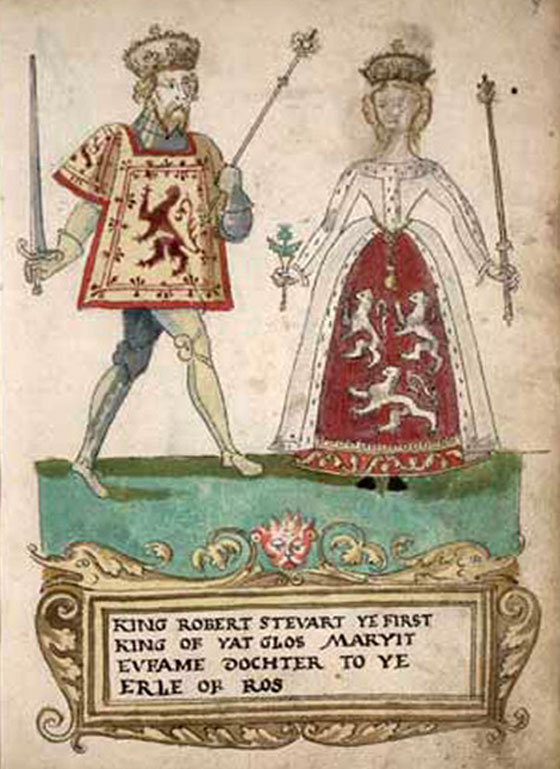 KING ROBERT STEVART YE FIRST
KING OF YAT GLOS MARYIT
EVFAME DOCHTER TO YE
ERLE OF ROS